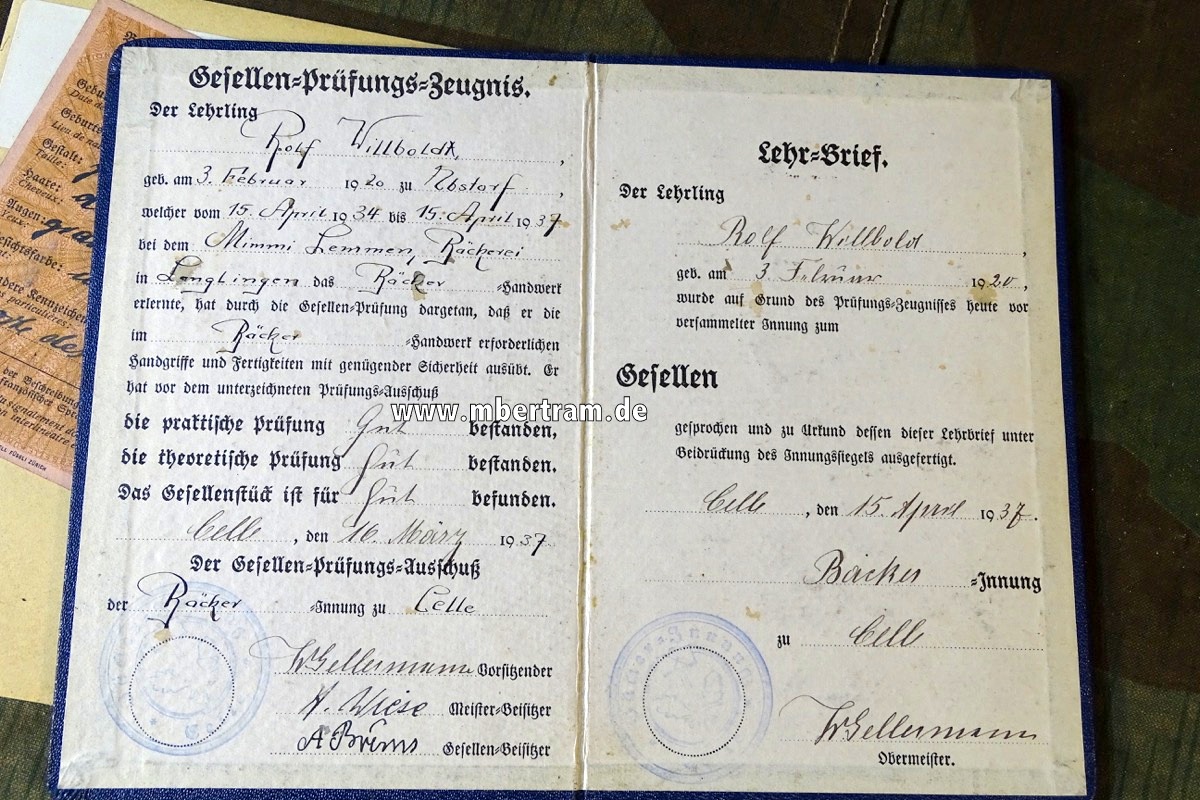 Gesellen-Prüfungs-Zeugnis.
Der Lehrling
Rolf Willboldt,
geb. am 3. Februar 1920 zu Ebstorf,
welcher vom 15. April 1934 bis 15. April 1937
bei dem Mimmi Lemmen, Bäckerei
in Lenglingen das Bäcker -Handwerk
erlernte, hat durch die Gesellen-Prüfung dargetan, daß er die
im Bäcker -Handwerk erforderlichen
Handgriffe und Fertigkeiten mit genügender Sicherheit ausübt. Er
hat vor dem unterzeichneten Prüfungs-Ausschuß
die praktische Prüfung Gut bestanden,
die theoretische Prüfung Gut bestanden.
Das Gesellenstück ist für Gut befunden.
Celle, den 16. März 1937
Der Gesellen-Prüfungs-Ausschuß
der Bäcker -Innung zu Celle
WGellermann Vorsitzender
H. Wiese Meister-Beisitzer
A Brüns Gesellen-Beisitzer
Lehr-Brief.
Der Lehrling
Rolf Willbold
geb. am 3. Februar 1920,
wurde auf Grund des Prüfungs-Zeugnisses heute vor
versammelter Innung zum
Gesellen
gesprochen und zu Urkund dessen dieser Lehrbrief unter
Beidrückung des Innungssiegels ausgefertigt.
Celle, den 15. April 1937.
Bäcker -Innung
zu Celle
WGellermann
Obermeister.
www.mbertram.de
Gestalt:
Taille:
Haare:
Cheveux:
Augen: grau